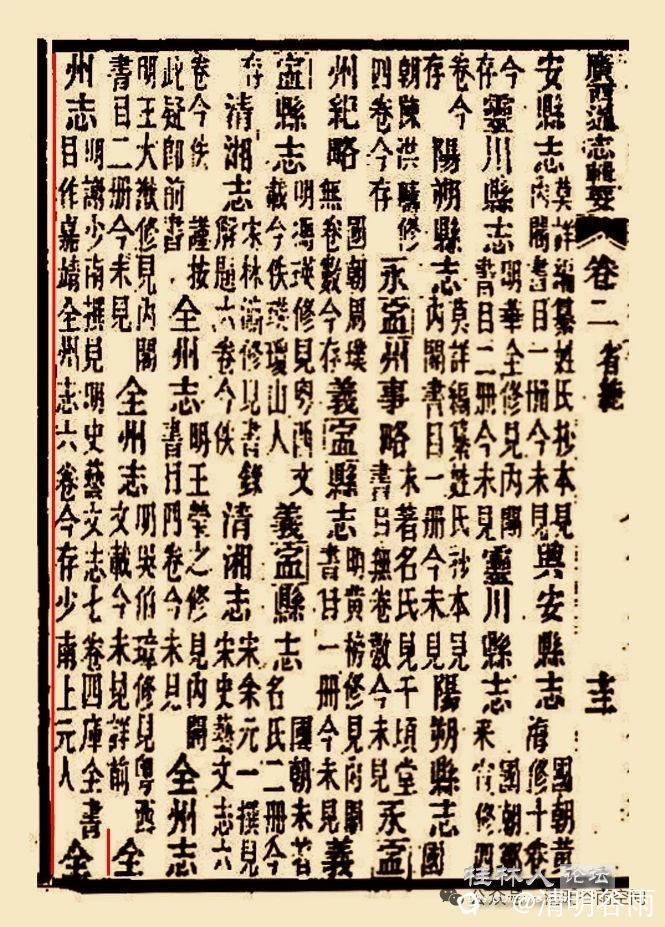 廣西通志輯要 卷二 省總
安縣志 莫詳編纂姓氏抄本見內閣書目一冊今未見 興安縣志 國朝黃海修十卷
今存 靈川縣志 明華全修見內閣書目二冊今未見 靈川縣志 國朝鄭采宣修四
卷今存 陽朔縣志 莫詳編纂姓氏抄本見內閣書目一冊今未見 陽朔縣志 國
朝陳洪疇修四卷今存 永寍州事略 未著名氏見千頃堂書目無卷數今未見 永寍
州紀略 國朝周璞無卷數今存 義寍縣志 明黃榜修見內閣書目一冊今未見 義
寍縣志 明馮瑛修見粵西文載今佚瑛瓊山人 義寍縣志 國朝未著名氏二冊今
存 清湘志 宋林瀛修見書錄解題六卷今佚 清湘志 宋余元一撰見宋史藝文志六
卷今佚謹按此疑即前書 全州志 明王瑩之修見內閣書目四卷今未見 全州志
明王大漵修見內閣書目二冊今未見 全州志 明吳伯璋修見粵西文載今未見詳前 全
州志 明謝少南撰見明史藝文志七卷四庫全書目作嘉靖全州志六卷今存少南上元人 全
桂林人论坛
@清明谷雨